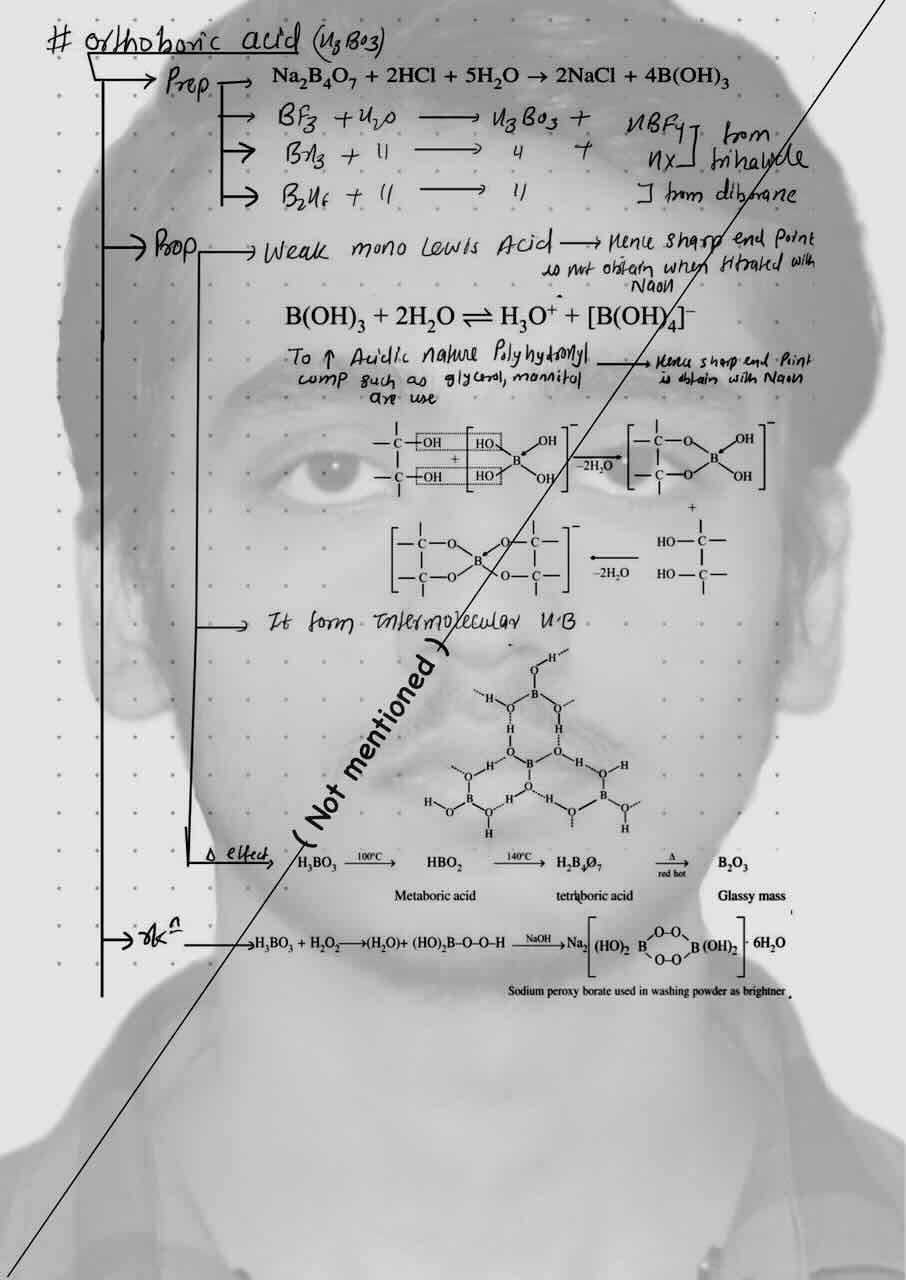 # orthoboric acid (H3BO3)
Prep
Na₂B₄O₇ + 2HCl + 5H₂O → 2NaCl + 4B(OH)₃
BF3 + H2O → H3BO3 + HBF4
BX3 + 11 → 11 + HX
from trihalide
B2H6 + 11 → 11 ] from diborane
Prop
Weak mono Lewis Acid → Hence sharp end Point
is not obtain when titrated with
NaOH
B(OH)₃ + 2H₂O ⇌ H₃O⁺ + [B(OH)₄]⁻
To ↑ Acidic nature Polyhydroxyl → Hence sharp end Point
comp such as glycerol, mannitol is obtain with NaOH
are use
–C–OH HO OH
+ B –2H₂O
–C–OH HO OH
–C–O OH
B
–C–O OH
+
–C–O O–C–
B
–C–O O–C–
–2H₂O
HO–C–
HO–C–
It form Intermolecular H.B
(Not mentioned)
Δ effect
H₃BO₃ 100°C → HBO₂ 140°C → H₂B₄O₇ Δ red hot → B₂O₃
Metaboric acid tetraboric acid Glassy mass
rxⁿ
H₃BO₃ + H₂O₂ → (H₂O) + (HO)₂B–O–O–H NaOH → Na₂ [(HO)₂ B O–O O–O B(OH)₂] · 6H₂O
Sodium peroxy borate used in washing powder as brightner.